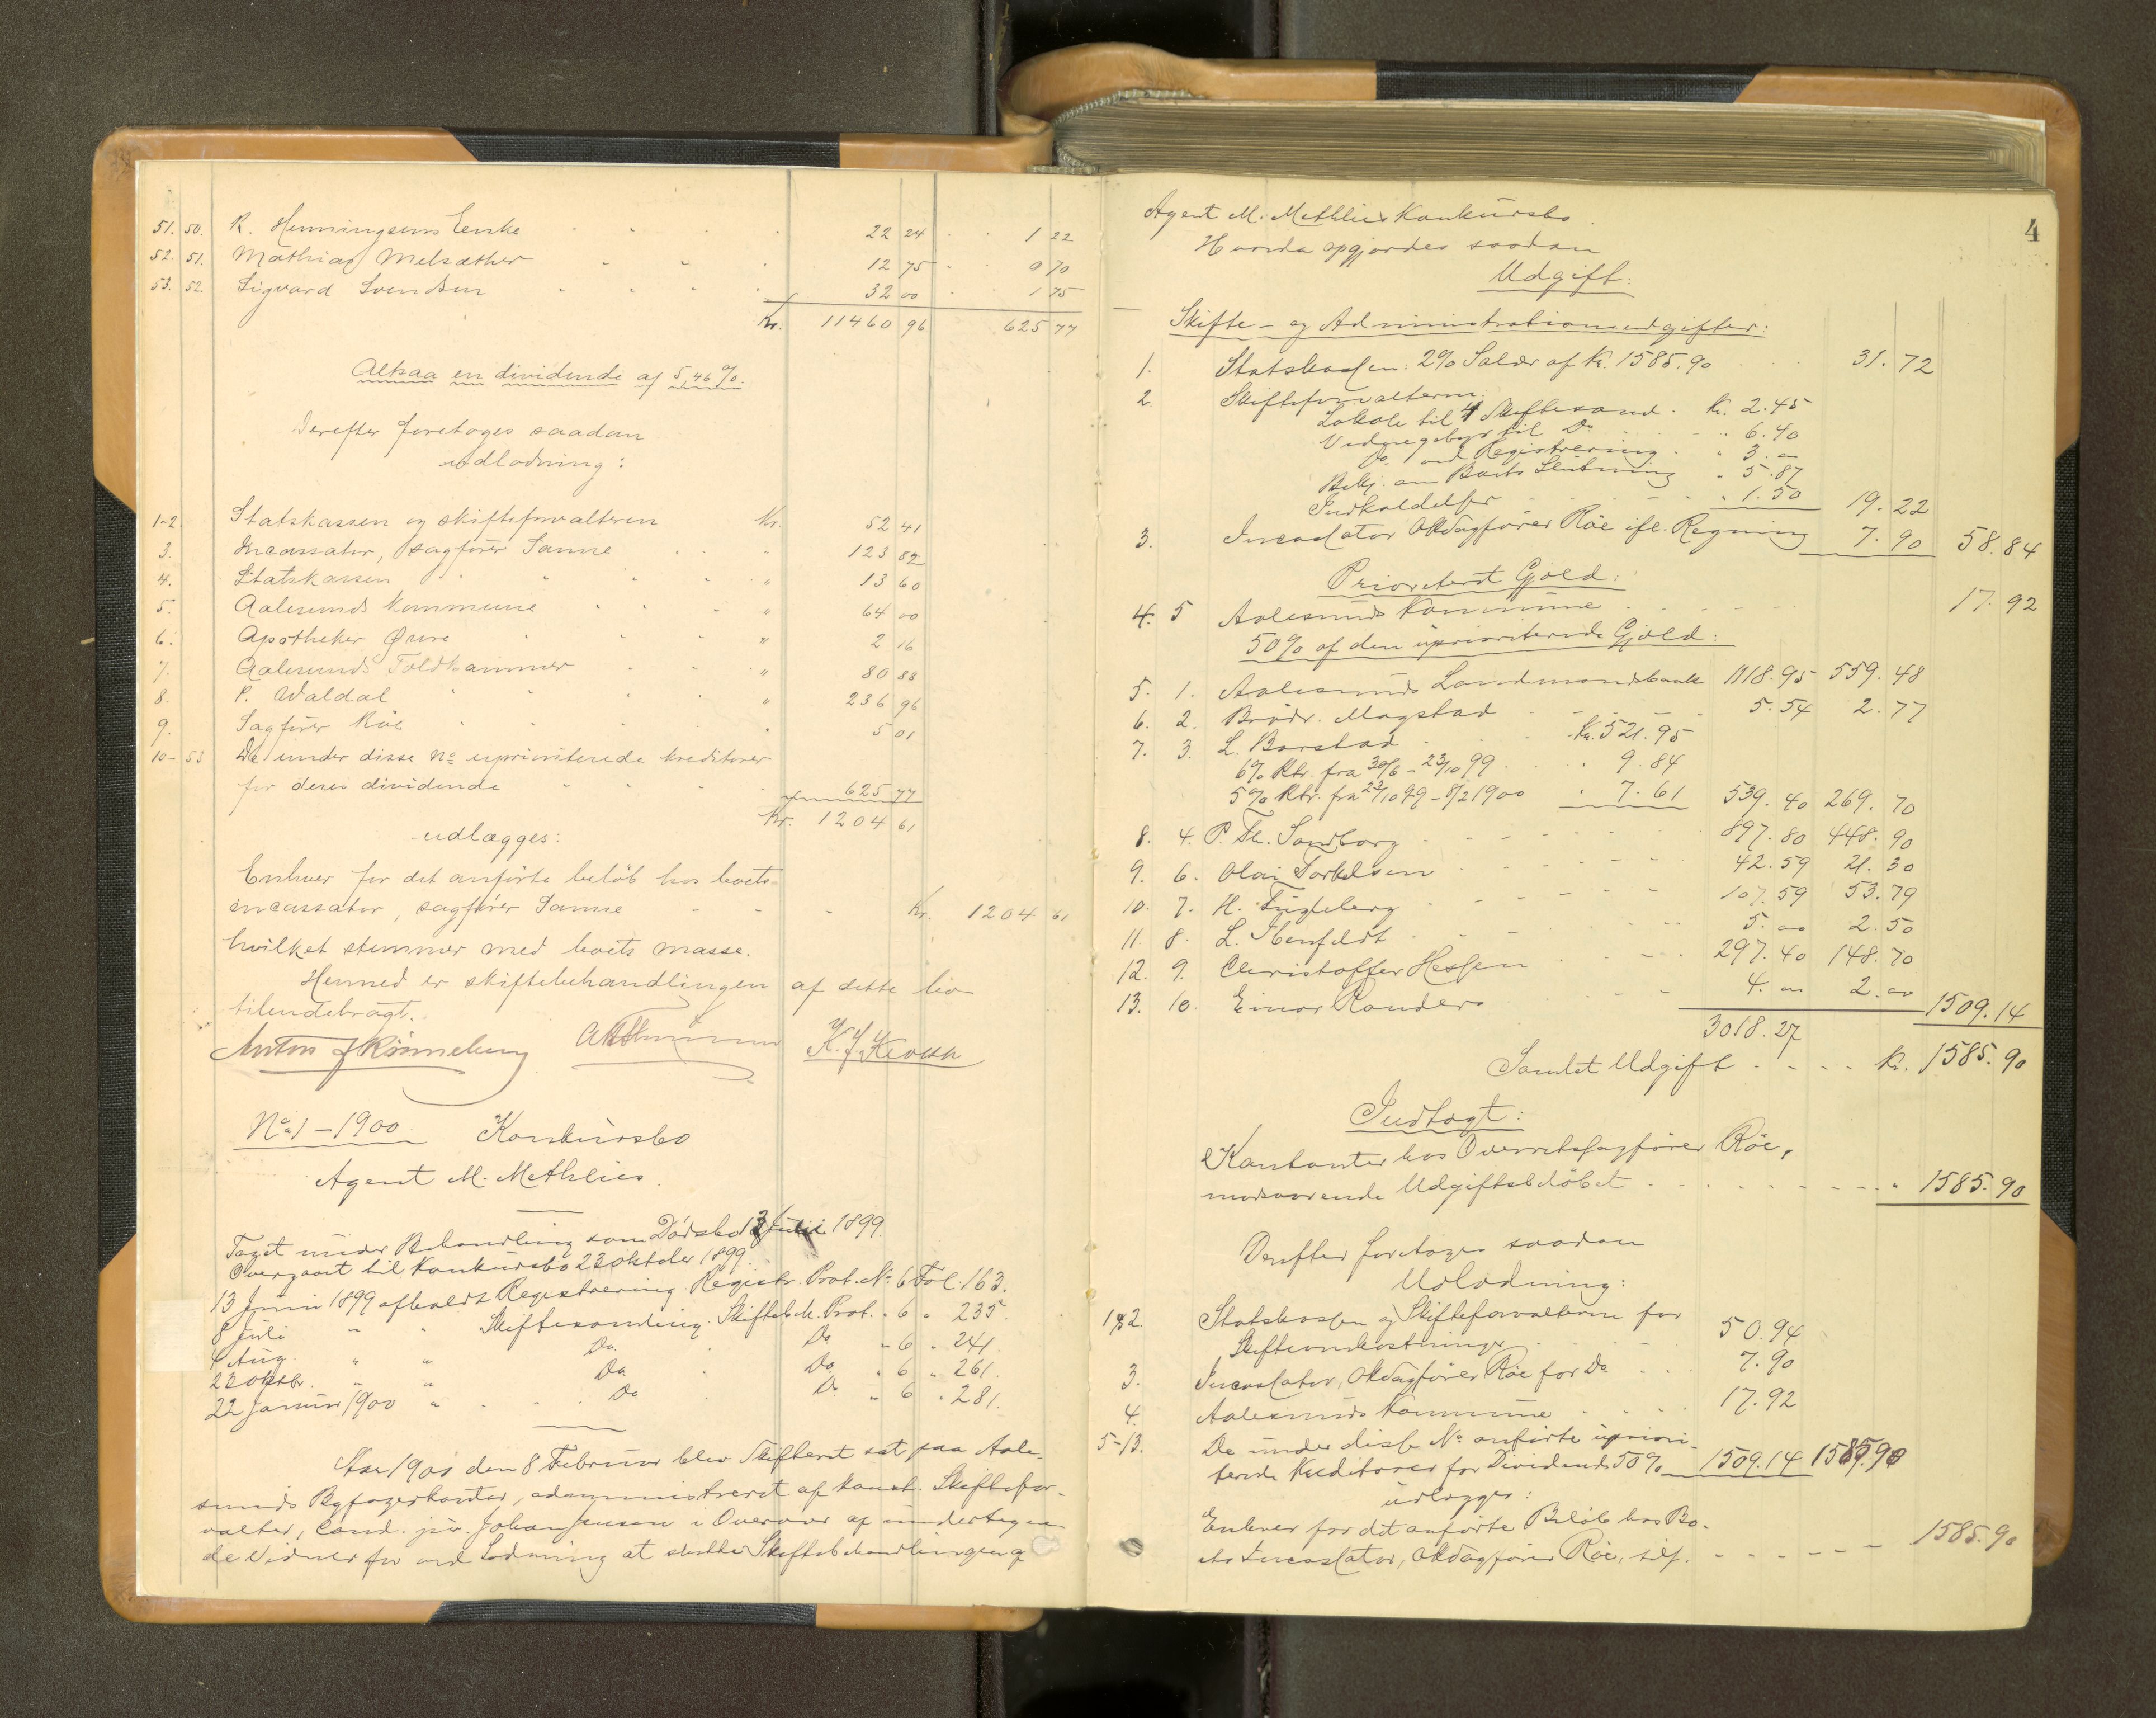 51. 50. R. Henningsens Enke 22 24 1 22
52. 51. Mathias Melsæther 12 75 0 70
53. 52. Sigvard Svendsen 32 00 1 75
Kr. 11460 96 625 77
Altsaa en dividende af 5,46 %.
Derefter foretoges saadan
udlodning:
1-2. Statskassen og skifteforvalteren Kr. 52 41
3. Incassator, sagfører Sanne " 123 82
4. Statskassen " 13 60
5. Aalesunds kommune " 64 00
6. Apotheker Øwre " 2 16
7. Aalesunds Toldkammer " 80 88
8. P. Waldal " 236 96
9. Sagfører Röe " 5 01
10-53 De under disse No uprioriterede kreditorer
for deres dividende 625 77
Kr. 1204 61
udlægges:
Enhver for det anførte beløb hos boets
incassator, sagfører Sanne Kr. 1204 61
hvilket stemmer med boets masse.
Hermed er skiftebehandlingen af dette bo
tilendebragt.
Anton J Rönneberg K. J. Kvam
No 1-1900. Konkursbo
Agent M. Methlies.
Taget under Behandling som Dödsbo 13 Juni 1899.
Overgaaet til Konkursbo 23 oktober 1899.
13 Juni 1899 afholdt Registrering. Registr. Prot. No 6 Fol. 163.
8 Juli " " Skiftesamling. Skifteb. Prot. " 6 " 235.
4 Aug. " " Do. Do " 6 " 241.
23 oktbr. " " Do Do " 6 " 261.
22 Januar 1900 " Do Do " 6 " 281.
Aar 1900 den 8 Februar blev Skifteret sat paa Aale-
sunds Byfogedkontor, administreret af konst. Skiftefor-
valter, Cand. jur. Johan Jensen i Overvær af undertegne-
de Vidner for ved Lodning at slutte Skiftebehandlingen af
4
Agent M. Methlies Konkursbo.
Hvorda opgjordes saadan
Udgift:
Skifte- og Administrationsudgifter:
1. Statskassen: 2% Salær af Kr. 1585.90 31.72
2. Skifteforvalteren:
Lokale til 4 Skiftesaml. Kr. 2.45
Vidnegebyr til Do " 6.40
Do. ved Registrering " 3.00
Bekj. om Boets Slutning " 5.87
Indkaldelser " 1.50 19.22
3. Incassator O.R.Sagfører Röe ifl. Regning 7.90 58.84
Prioriteret Gjæld:
4. 5 Aalesunds Kommune 17.92
50% af den uprioriterede Gjæld:
5. 1. Aalesunds Landmandsbank 1118.95 559.48
6. 2. Brödr. Magstad 5.54 2.77
7. 3. L. Barstad Kr. 521.95
6% Rtr. fra 30/6 - 23/10 99 " 9.84
5% Rtr. fra 23/10 99 - 8/2 1900 " 7.61 539.40 269.70
8. 4. P. Th. Sandborg 897.80 448.90
9. 6. Olai Torkelsen 42.59 21.30
10. 7. H. Fugleberg 107.59 53.79
11. 8. L. Ibenfeldt 5.00 2.50
12. 9. Christoffer Hessen 297.40 148.70
13. 10. Einar Randers 4.00 2.00 1509.14
3018.27
Samlet Udgift Kr. 1585.90
Indtægt:
Kontanter hos Overretssagfører Röe,
modsvarende Udgiftsbelöbet " 1585.90
Derefter foretoges saadan
Udlodning:
1 & 2. Statskassen og Skifteforvalteren for
Skifteomkostninger 50.94
3. Incassator, O.R.Sagfører Röe for Do 7.90
4. Aalesunds Kommune 17.92
5-13. De under disse No anförte upriori-
terede Kreditorer for Dividende 50% 1509.14 1585.90
udlægges:
Enhver for det anförte Belöb hos Bo-
ets Incassator, O.R.Sagförer Röe, tils. 1585.90